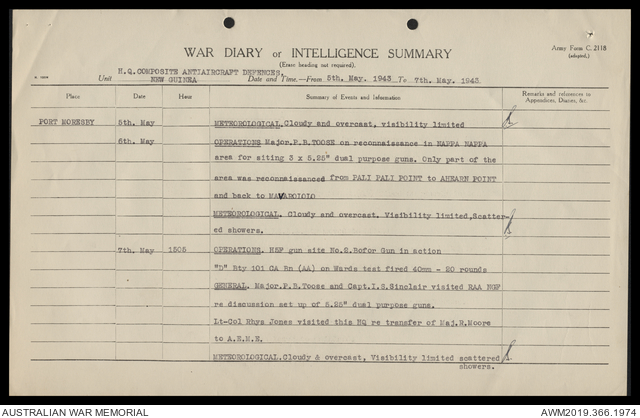 Army Form C. 2118
(adapted.)
WAR DIARY or INTELLIGENCE SUMMARY
(Erase heading not required).
H.Q.COMPOSITE ANTIAIRCRAFT DEFENCES.
Unit NEW GUINEA Date and Time.—From 5th. May. 1943 To 7th. May. 1943
Place Date Hour Summary of Events and Information Remarks and references to Appendices, Diaries, &c.
PORT MORESBY 5th. May METEOROLOGICAL. Cloudy and overcast, visibility limited
6th. May OPERATIONS Major.P.B.TOOSE on reconnaissance in NAPPA NAPPA
area for siting 3 x 5.25" dual purpose guns. Only part of the
area was reconnaissanced from PALI PALI POINT to AHEARN POINT
and back to MAVAROIOLO
METEOROLOGICAL. Cloudy and overcast. Visibility limited,Scatter-
ed showers.
7th. May 1505 OPERATIONS. No.2.Bofor Gun in action
"D" Bty 101 CA Bn (AA) on Wards test fired 40mm - 20 rounds
GENERAL. Major.P.B.Toose and Capt.I.S.Sinclair visited RAA NGF
re discussion set up of 5.25" dual purpose guns.
Lt-Col Rhys Jones visited this HQ re transfer of Maj.R.Moore
to A.E.M.E.
METEOROLOGICAL.Cloudy & overcast, Visibility limited scattered
showers.
AUSTRALIAN WAR MEMORIAL
AWM2019.366.1974